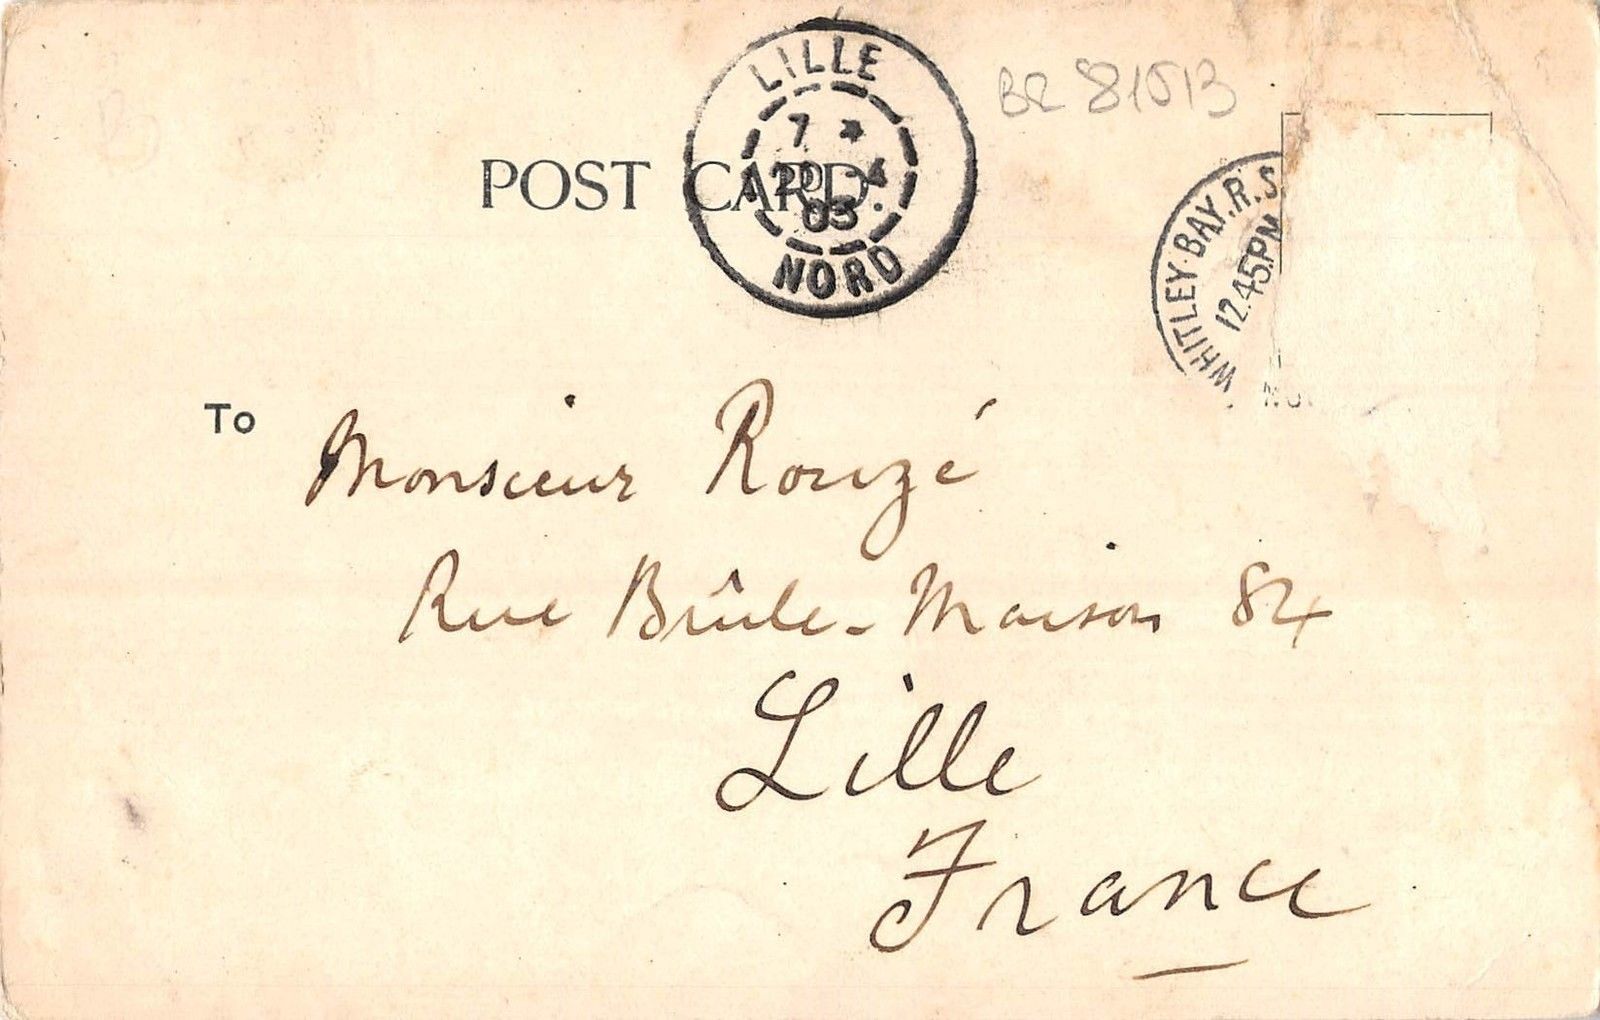 LILLE
7 *
20 4
03
NORD
BR 81513
POST CARD.
WHITLEY·BAY.R.S
12.45PM
To
Monsieur Rouzé
Rue Brûle-Maison 84
Lille
France